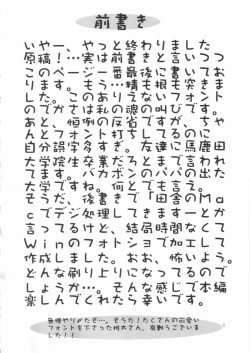 前書き
いやー、やっと終わりました
原稿！…実は前書きと言いつつ
このページ一番最後に書いてお
ります。もう…精も根も突きま
した。このありえないフォント
のでかさは私の魂の叫びです。
あと、恒例の反省ですが、ちゃ
んとフォント打ちしてるのに
自分誤字多すぎ。友達に馬鹿田
大学院生卒業だろとまで言われ
てます。バカボンのパパの出た
大学ですね。何とでも言え。
そうだ、後書きで「田舎のMa
cでデジ処理してきますーとか
言ってるけど、結局時間なくて
Winのフォトショで加工して
作成しました。おお、怖いよう。
どんな刷り上りになってるので
しょうか…。そんな感じで本編
楽しんでくれたら幸いです。
無理やりがたぞ…。そうだ！たくさんの可愛い
フォントを下さった樹木さん、有難うございま
した！！